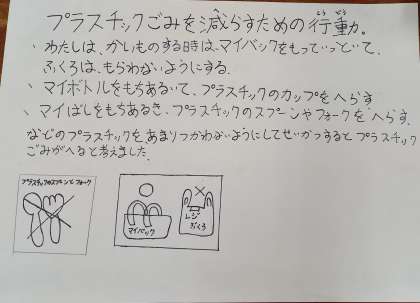 プラスチックごみを減らすための行動。
こう どう
、わたしは、かいものする時は、マイバックをもっていっといて、
ふくろは、もらわないようにする。
、マイボトルをもちあるいて、プラスチックのカップをへらす
、マイはしをもちあるき、プラスチックのスプーンやフォークを、へらす。
などのプラスチックを、あまりつかわないようにしてせいかつするとプラスチック
ごみがへると考えました。
プラスチックのスプーンとフォーク
マイバック
レジ
ぶくろ